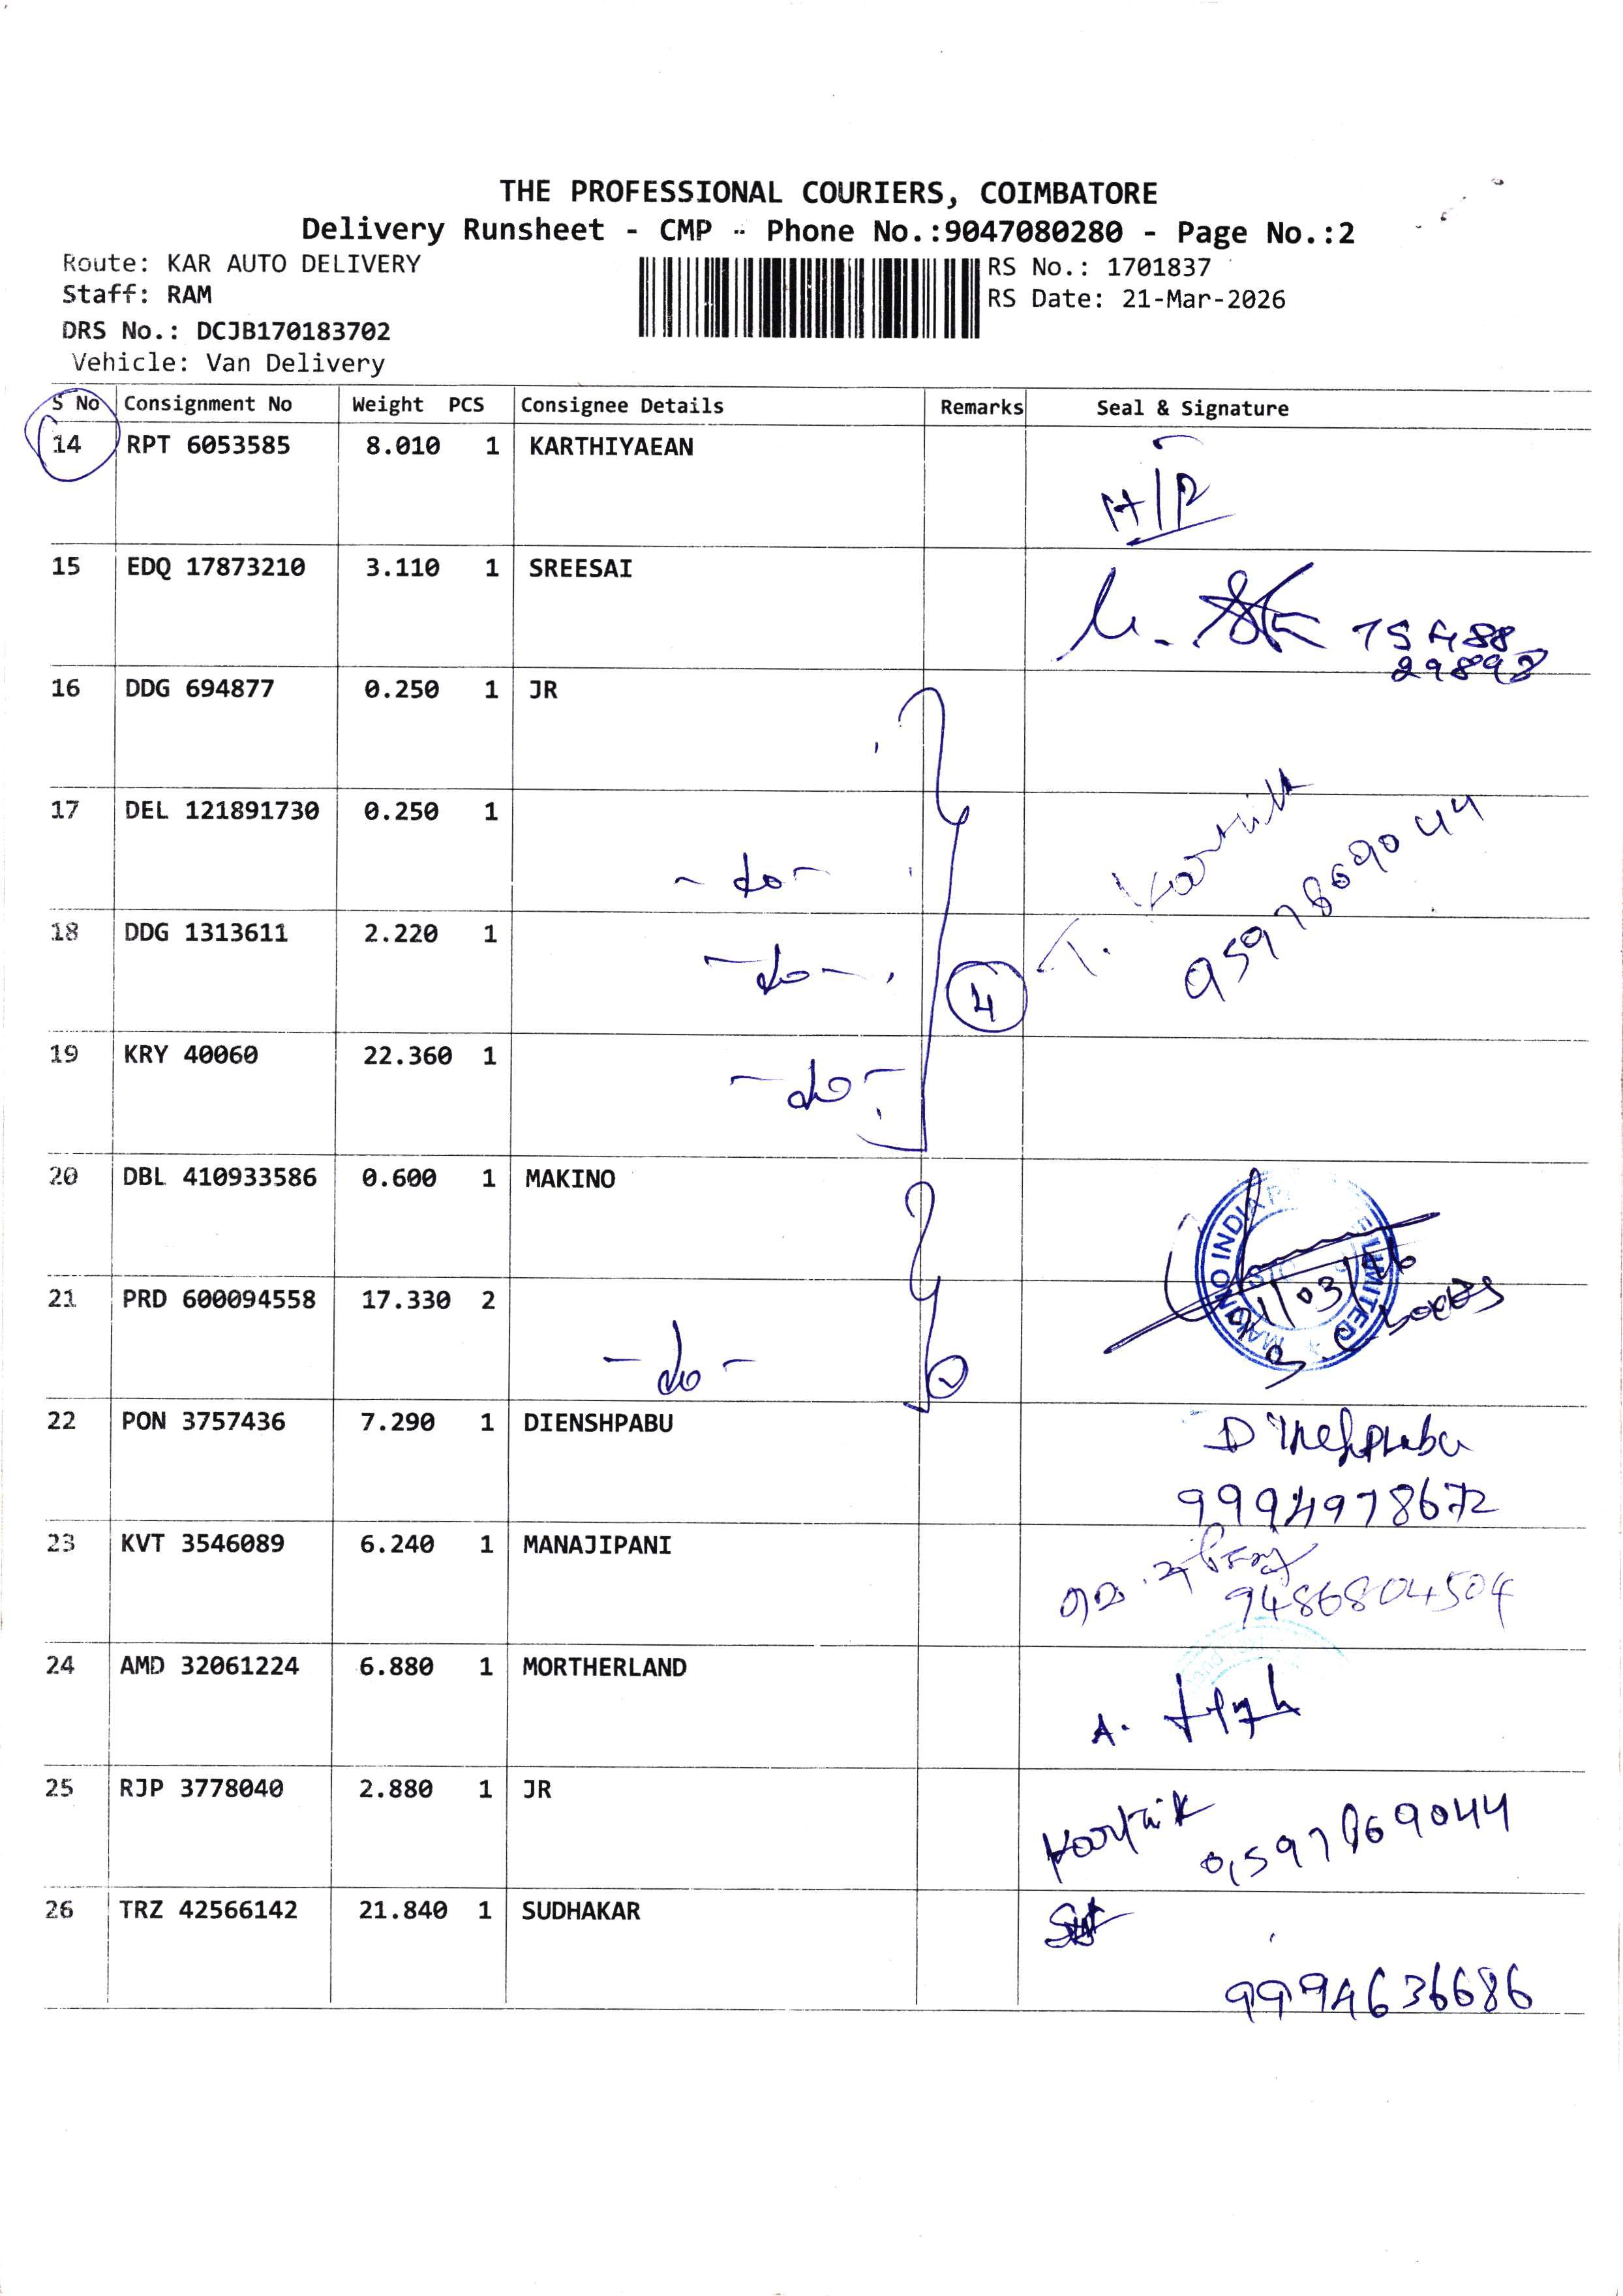 THE PROFESSIONAL COURIERS, COIMBATORE
Delivery Runsheet - CMP - Phone No.:9047080280 - Page No.:2
Route: KAR AUTO DELIVERY
RS No.: 1701837
Staff: RAM
RS Date: 21-Mar-2026
DRS No.: DCJB170183702
Vehicle: Van Delivery
S No Consignment No Weight PCS Consignee Details Remarks Seal & Signature
14 RPT 6053585 8.010 1 KARTHIYAEAN
15 EDQ 17873210 3.110 1 SREESAI
29898
16 DDG 694877 0.250 1 JR
17 DEL 121891730 0.250 1 -do-
18 DDG 1313611 2.220 1 -do- 4 T. Karthik
9597869044
19 KRY 40060 22.360 1 -do-
20 DBL 410933586 0.600 1 MAKINO
MAKINO INDIA LIMITED
21/03/26
21 PRD 600094558 17.330 2 -do-
22 PON 3757436 7.290 1 DIENSHPABU
9994978672
23 KVT 3546089 6.240 1 MANAJIPANI
9486804504
24 AMD 32061224 6.880 1 MORTHERLAND A.
25 RJP 3778040 2.880 1 JR Karthik 9597869044
26 TRZ 42566142 21.840 1 SUDHAKAR
9994636686